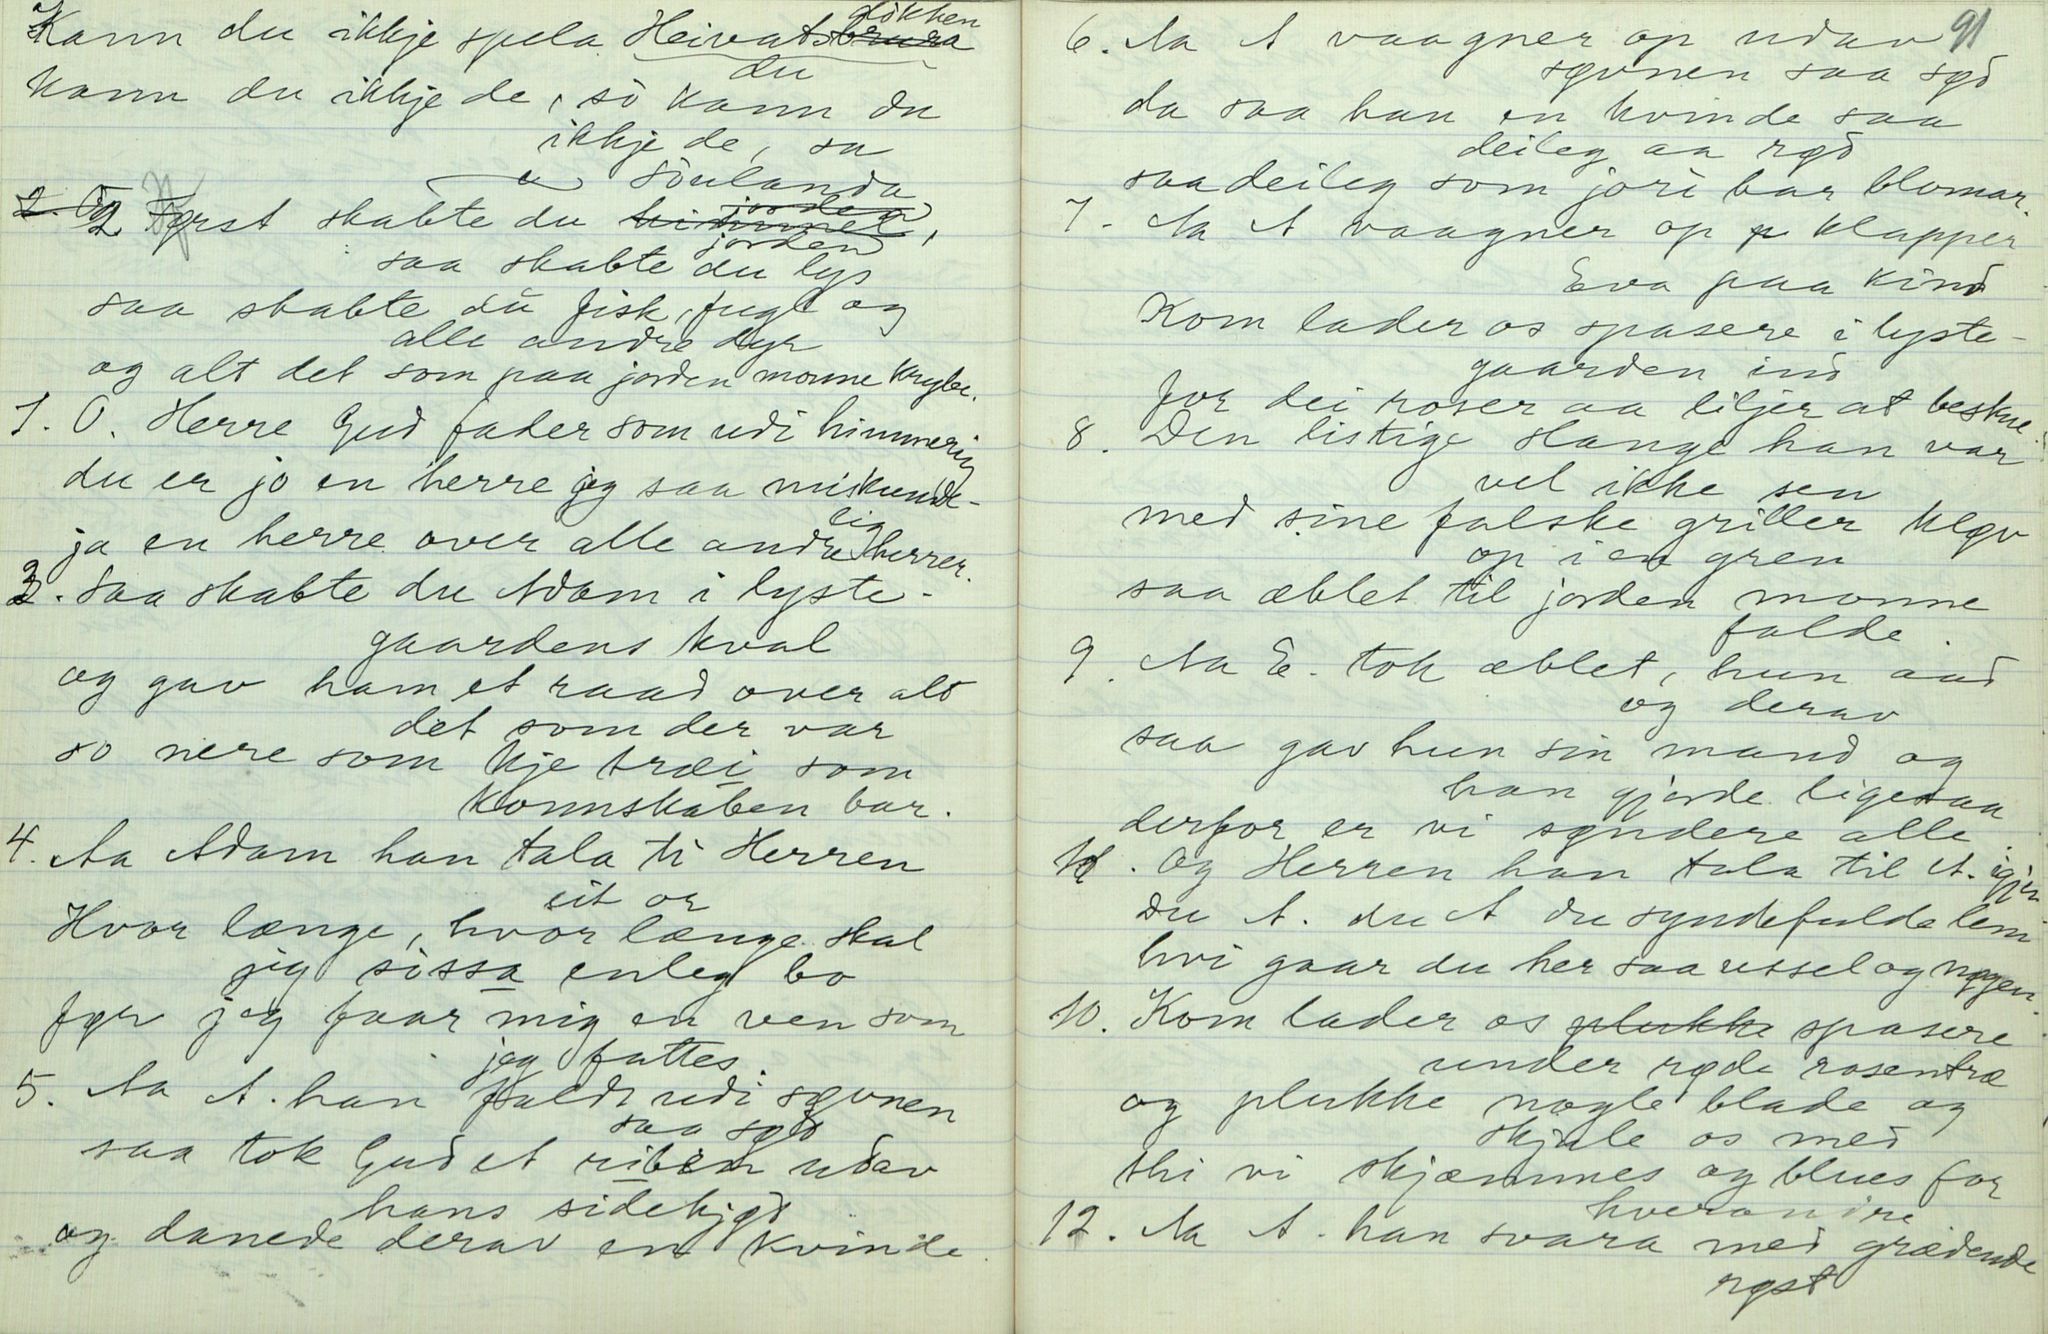 Kann du ikkje spela Heivats slåkken
du
kann du ikkje de, so kann du
ikkje de, sa
Söulanda
2 Først skabte du
jorden
saa skabte du lys
saa skabte du fisk, fugl og
alle andre dyr
og alt det som paa jorden monne krybe.
1. O. Herre Gud fader som udi himmerig
du er jo en herre jeg saa miskunde-
lig
ja en herre over alle andre herrer.
3. Saa skabte du Adam i lyste-
gaardens kval
og gav ham et raad over alt
det som der var
so nere som kje træi som
konnskaben bar.
4. Aa Adam han tala ti Herren
eit or
Hvor længe, hvor længe skal
jeg sissa enleg bo
før jeg faar mig en ven som
jeg fattes.
5. Aa A. han faldt udi søvnen
saa sød
saa tok Gud et riben udav
hans sidekjød
og danede derav en kvinde
91
6. Aa A vaagner op udav
søvnen saa sød
da saa han en kvinde saa
deileg aa rød
saa deileg som jori bar blomar.
7. Aa A vaagner op klapper
Eva paa kind
Kom lader os spasere i lyste-
gaarden ind
for dei roser aa liljer at beskue.
8. Den listige slange han var
vel ikke sen
med sine falske griller kløv
op i en gren
saa æblet til jorden monne
falde
9. Aa E. tok æblet, hun aad
og derav
saa gav hun sin mand og
han gjorde ligesaa
derfor er vi syndere alle
11. Og Herren han tala til A. igjen
Du A. du A du syndefulde lem
hvi gaar du her saa ussel og nøgen.
10. Kom lader os plukke spasere
under røde rosentræ
og plukke nogle blade og
skjule os med
thi vi skjæmmes og blues for
hverandre
12. Aa A. han svara med grædende
røst